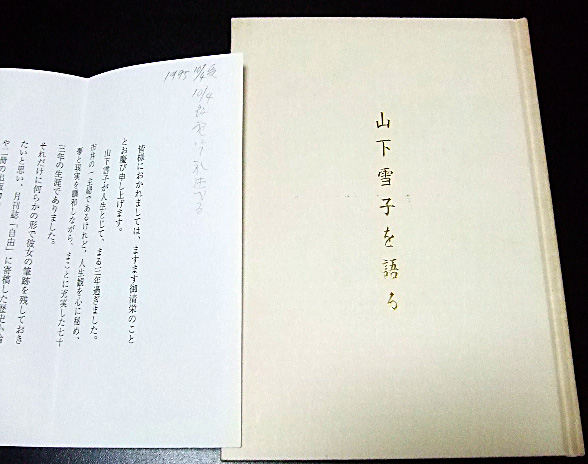 山下雪子を語る
1995 10/4 受
10/4
皆様におかれましては、ますます御清栄のこと
とお慶び申し上げます。
山下雪子が人生をとじて、まる三年過ぎました。
市井の一主婦であるけれど、人生観を心に秘め、
夢と現実を調和しながら、まことに充実した七十
三年の生涯でありました。
それだけに何らかの形で彼女の筆跡を残しておき
たいと思い、月刊誌「自由」に寄稿した歴史小論
や二冊の出版